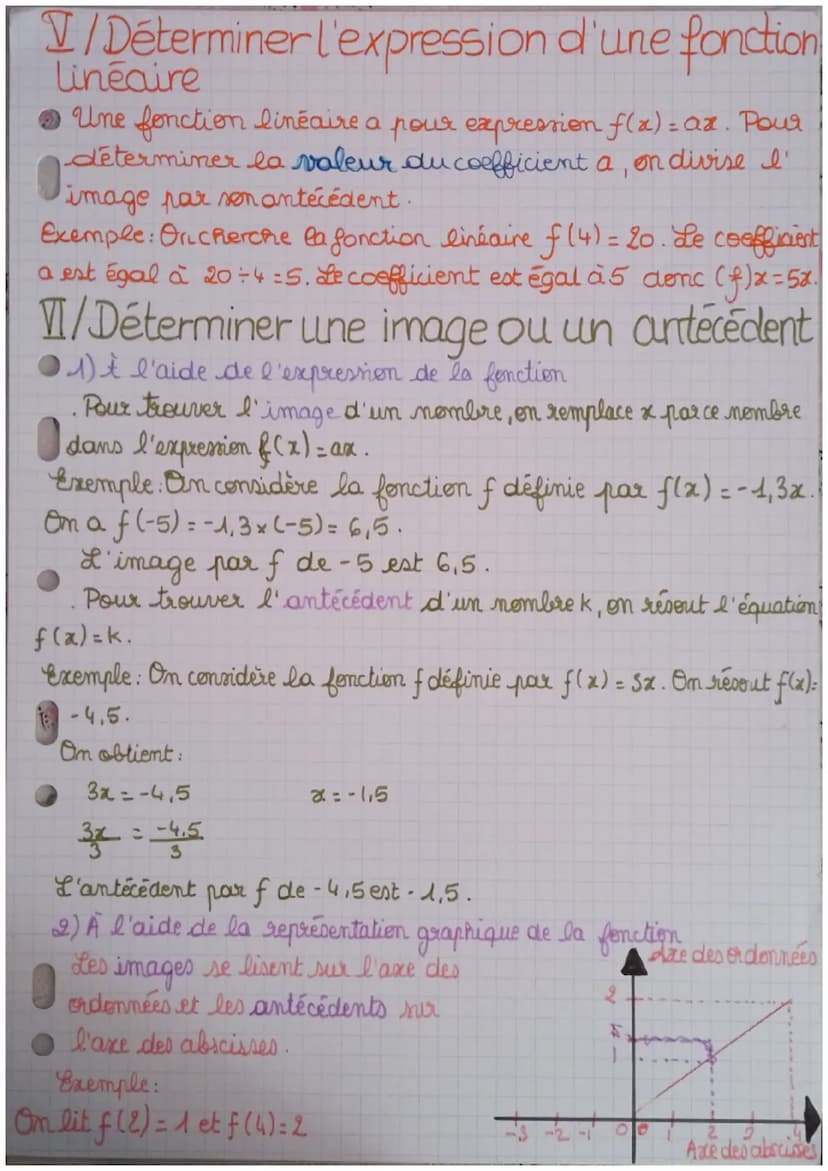 V/Déterminer l'expression d'une fonction
linéaire
Une fonction linéaire a pour expression f(x)=ax. Pour
déterminer la valeur du coefficient a, on divise l'
image par son antécédent.
Exemple: On cherche la fonction linéaire f(4)=20. Le coefficient
a est égal à 20÷4=5. Le coefficient est égal à 5 donc (f)x=5x.
VI/Déterminer une image ou un antécédent
1) À l'aide de l'expression de la fonction
. Pour trouver l'image d'un nombre, on remplace x par ce nombre
dans l'expression f(x)=ax.
Exemple: On considère la fonction f définie par f(x)=-1,3x.
On a f(-5)=-1,3×(-5)=6,5.
L'image par f de -5 est 6,5.
. Pour trouver l'antécédent d'un nombre k, on résout l'équation
f(x)=k.
Exemple: On considère la fonction f définie par f(x)=3x. On résout f(x)=
-4,5.
On obtient:
3x=-4,5 x=-1,5
3x/3 = -4,5/3
L'antécédent par f de -4,5 est -1,5.
2) À l'aide de la représentation graphique de la fonction
Les images se lisent sur l'axe des
ordonnées et les antécédents sur
l'axe des abscisses.
Exemple:
On lit f(2)=1 et f(4)=2
Axe des ordonnées
2
1
-3 -2 -1 0 0 1 2 3 4
Axe des abscisses